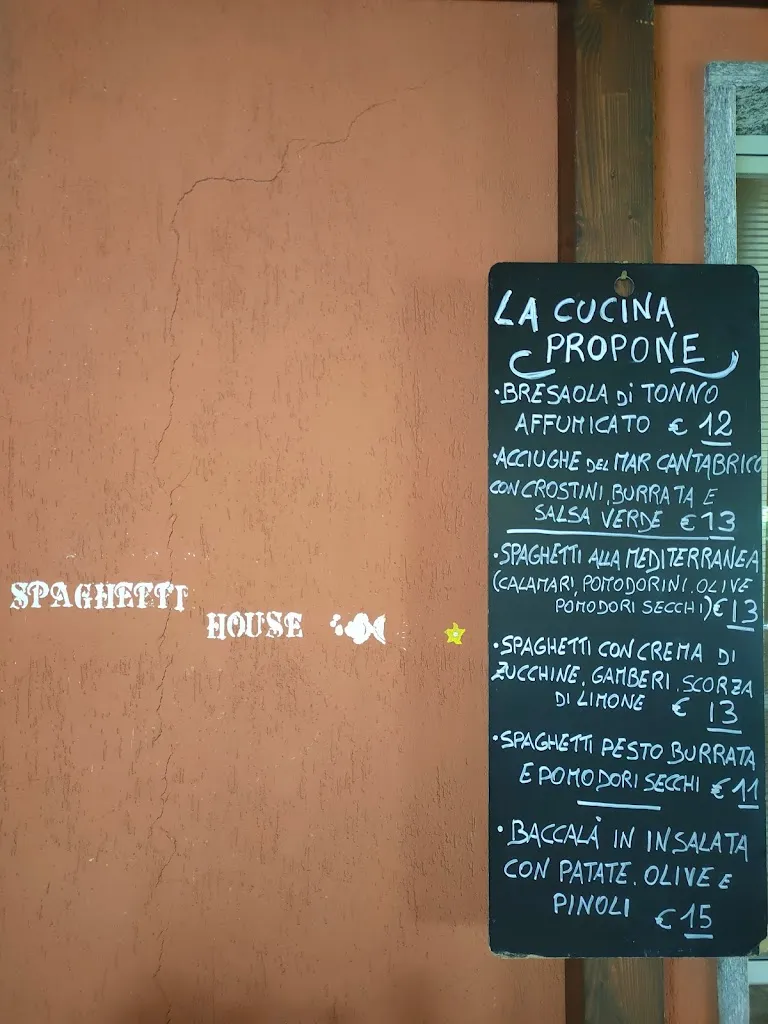 SPAGHETTI
HOUSE
LA CUCINA
PROPONE
• BRESAOLA Di TONNO
AFFUMICATO € 12
• ACCIUGHE DEL MAR CANTABRICO
CON CROSTINI, BURRATA E
SALSA VERDE € 13
• SPAGHETTI ALLA MEDITERRANEA
(CALAMARI, POMODORINI, OLIVE
POMODORI SECCHI) € 13
• SPAGHETTI CON CREMA DI
ZUCCHINE, GAMBERI, SCORZA
DI LIMONE € 13
• SPAGHETTI PESTO BURRATA
E POMODORI SECCHI € 11
• BACCALÀ IN INSALATA
CON PATATE, OLIVE E
PINOLI € 15